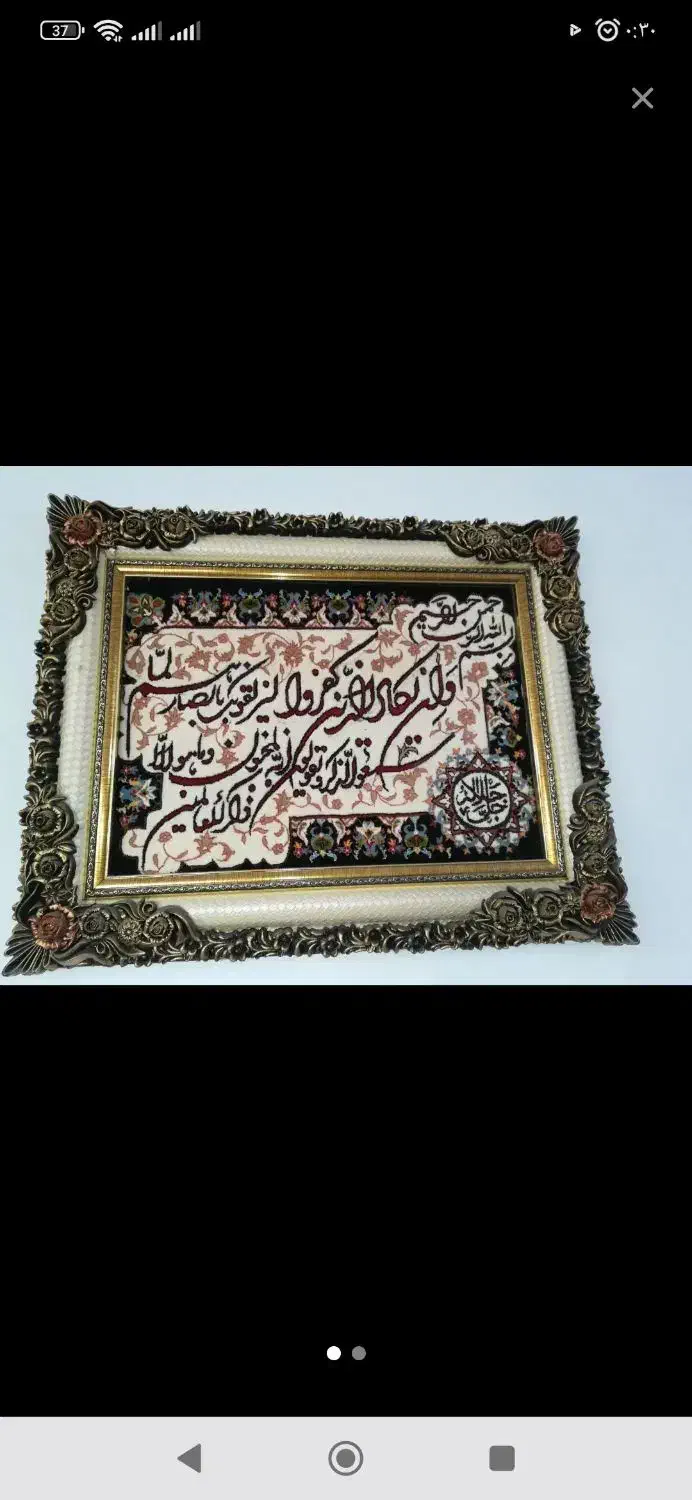 37
۰:۳۰
بسم الله الرحمن الرحیم
وان یکاد الذین کفروا لیزلقونک بابصارهم لما
سمعوا الذکر و یقولون انه لمجنون وما هو الا
ذکر للعالمین
جل جلاله